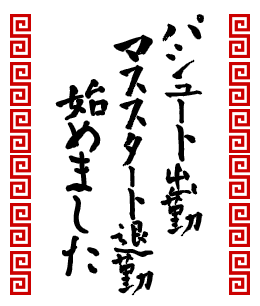 パシュート出勤
マススタート退勤
始めました